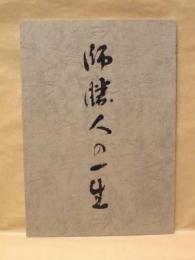 師勝人の一生